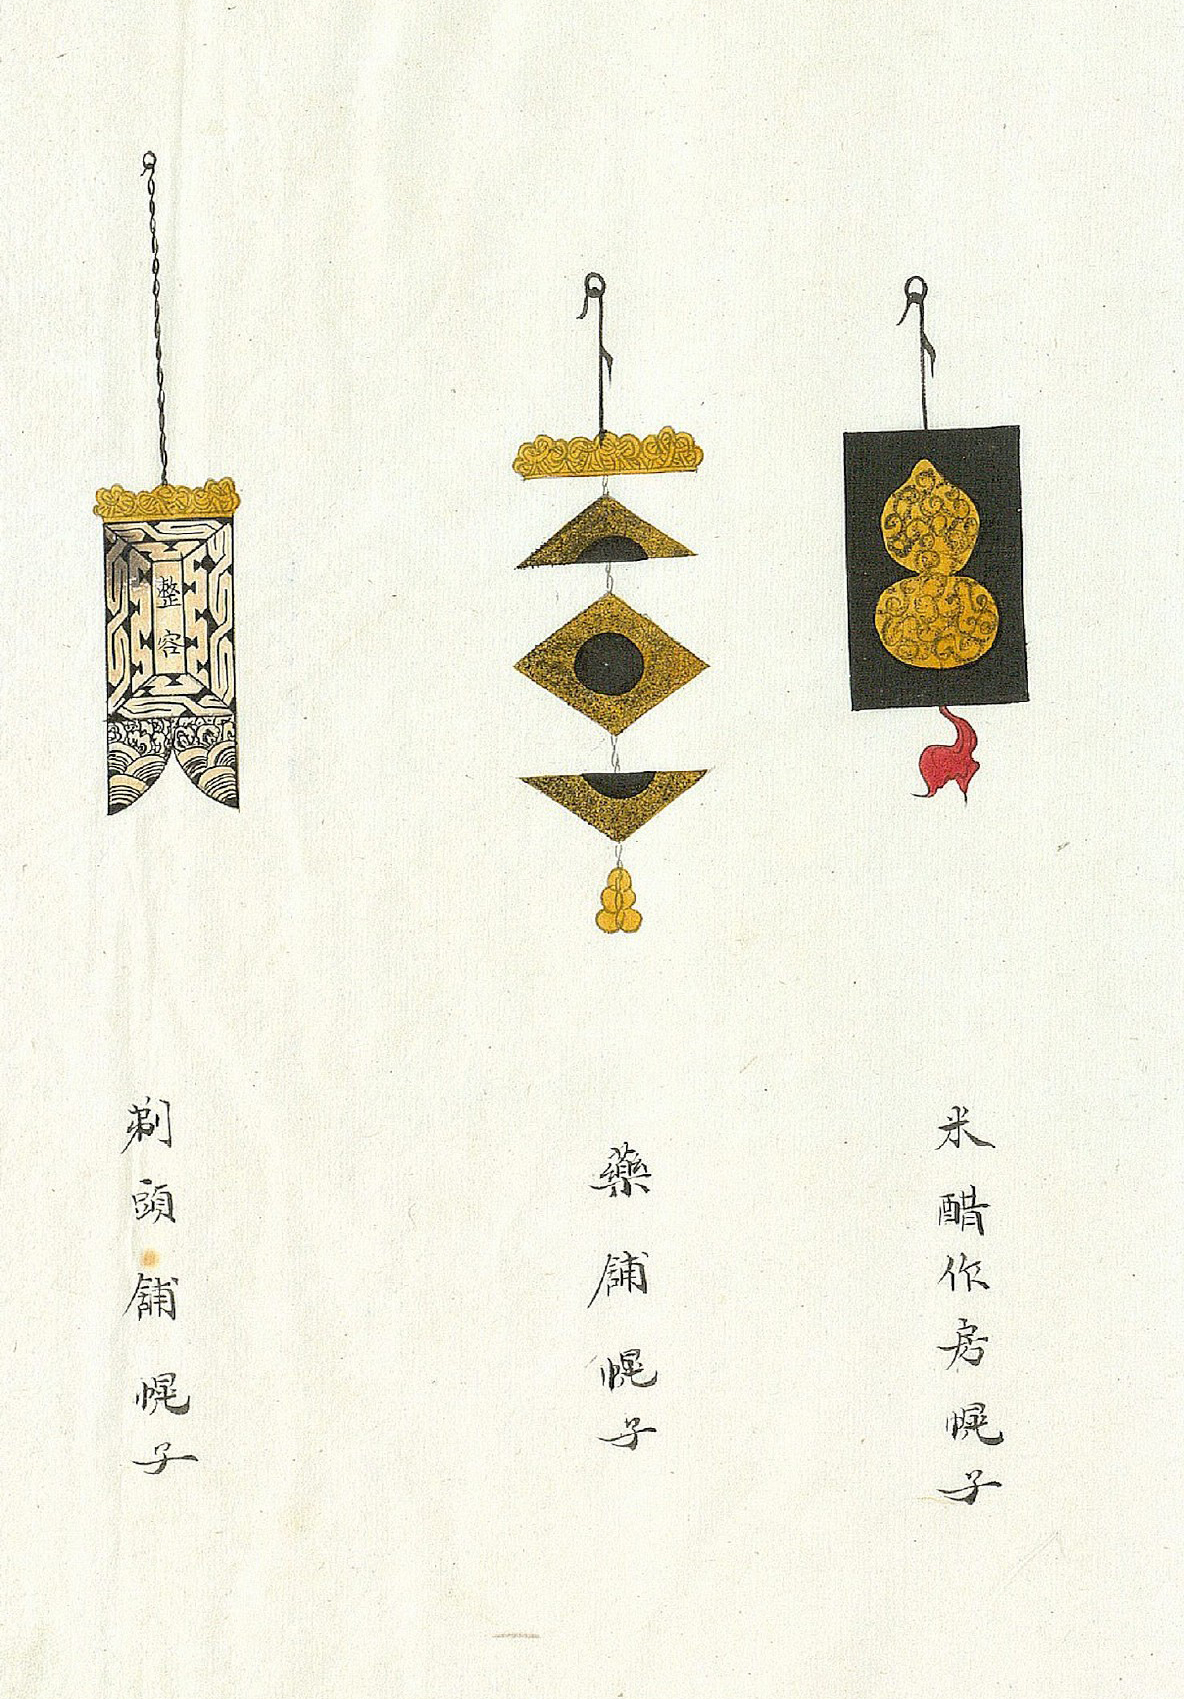 米醋作房幌子
藥舖幌子
整容
剃頭舖幌子